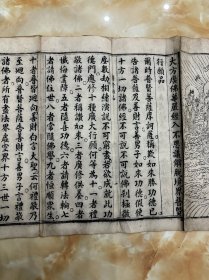 大方廣佛華嚴經入不思議解脫境界普賢
行願品
爾時普賢菩薩摩訶薩稱歎如來勝功德已
告諸菩薩及善財言善男子如來功德假使
十方一切諸佛經不可說不可說佛刹極微
塵數劫相續演說不可窮盡若欲成就此功
德門應修十種廣大行願何等為十一者禮
敬諸佛二者稱讚如來三者廣修供養四者
懺悔業障五者隨喜功德六者請轉法輪七
者請佛住世八者常隨佛學九者恒順眾生
十者普皆迴向善財白言大聖云何禮敬乃
至迴向普賢菩薩告善財言善男子言禮敬
諸佛者所有盡法界虛空界十方三世一切